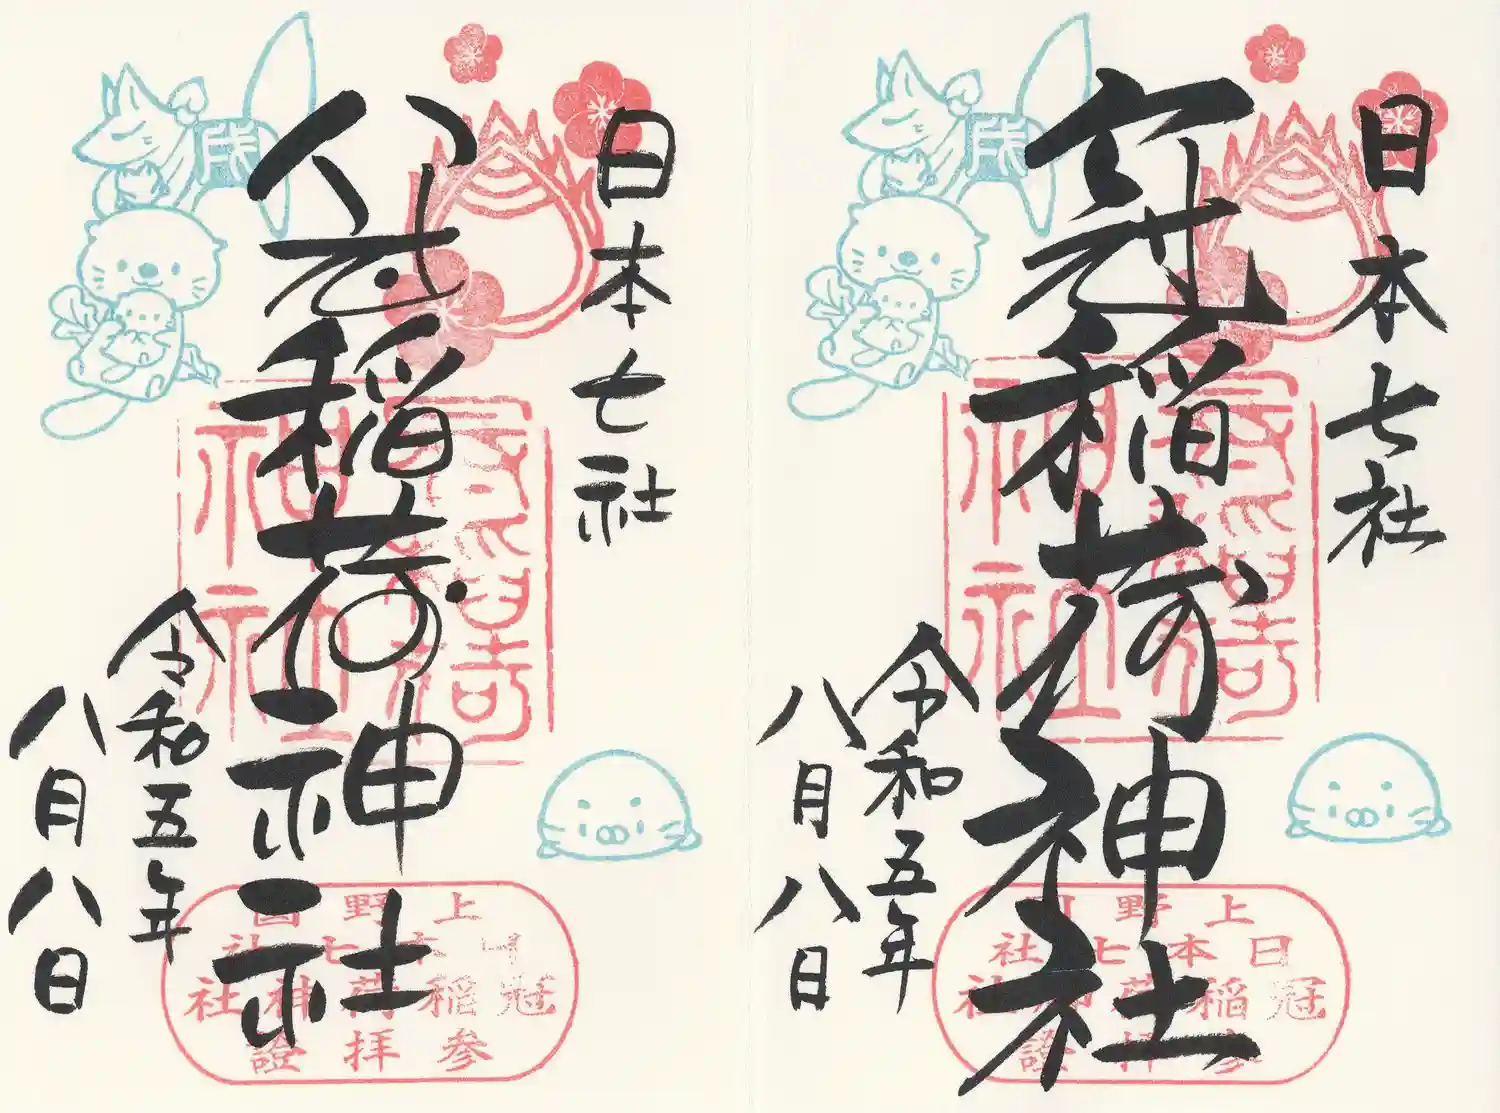 日本七社
冠稲荷神社
令和五年
八月八日
上野国
日本七社
冠稲荷神社
参拝證
日本七社
冠稲荷神社
令和五年
八月八日
上野國
日本七社
冠稲荷神社
参拝證